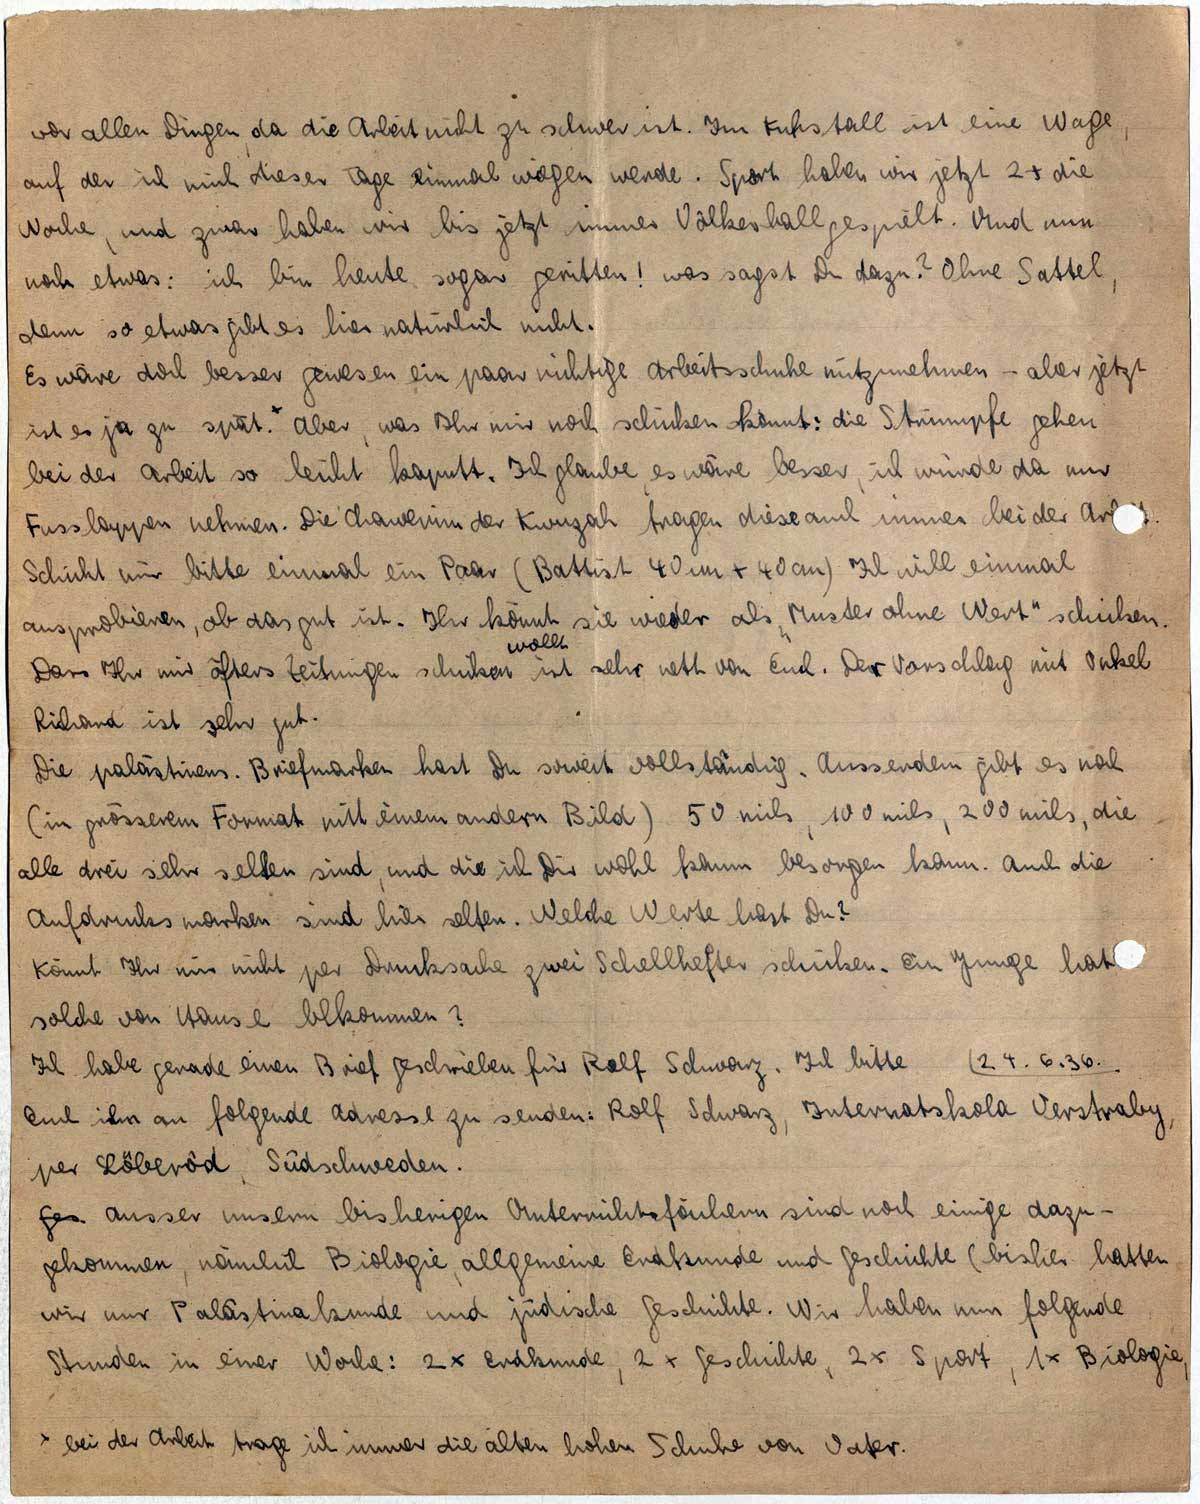 vor allen Dingen, da die Arbeit nicht zu schwer ist. Im Kuhstall ist eine Wage,
auf der ich mich dieser Tage einmal wiegen werde. Sport haben wir jetzt 2x die
Woche, und zwar haben wir bis jetzt immer Völkerball gespielt. Und nun
noch etwas: ich bin heute sogar geritten! was sagst Du dazu? Ohne Sattel,
denn so etwas gibt es hier natürlich nicht.
Es wäre doch besser gewesen ein paar richtige Arbeitsschuhe mitzunehmen – aber jetzt
ist es ja zu spät.* Aber, was Ihr mir noch schicken könnt: die Strümpfe gehen
bei der Arbeit so leicht kaputt. Ich glaube, es wäre besser, ich würde da nur
Fusslappen nehmen. Die Chawerim der Kwuzah tragen diese auch immer bei der Arb t.
Schickt mir bitte einmal ein Paar (Battist 40 cm x 40 cm) Ich will einmal
ausprobieren, ob das gut ist. Ihr könnt sie wieder als „Muster ohne Wert" schicken.
Dass Ihr mir öfters Zeitungen schicken wollt ist sehr nett von Euch. Der Vorschlag mit Onkel
Richard ist sehr gut.
Die palästinens. Briefmarken hast Du soweit vollständig. Ausserdem gibt es noch
(in grösserem Format mit einem andern Bild) 50 mils, 100 mils, 200 mils, die
alle drei sehr selten sind, und die ich Dir wohl kaum besorgen kann. Auch die
Aufdrucksmarken sind hier selten. Welche Werte hast Du?
Könnt Ihr mir nicht per Drucksache zwei Schellhefter schicken. Ein Junge hat
solche von Hause bekommen?
Ich habe gerade einen Brief geschrieben für Rolf Schwarz. Ich bitte (24.6.36.
Euch ihn an folgende Adresse zu senden: Rolf Schwarz, Internatskola Verstraby,
per Löberöd, Südschweden.
Ges ausser unsern bisherigen Unterrichtsfächern sind noch einige dazu-
gekommen, nämlich Biologie, allgemeine Erdkunde und Geschichte (bisher hatten
wir nur Palästinakunde und jüdische Geschichte. Wir haben nun folgende
Stunden in einer Woche: 2x Erdkunde, 2x Geschichte, 2x Sport, 1x Biologie,
* bei der Arbeit trage ich immer die alten hohen Schuhe von Vater.